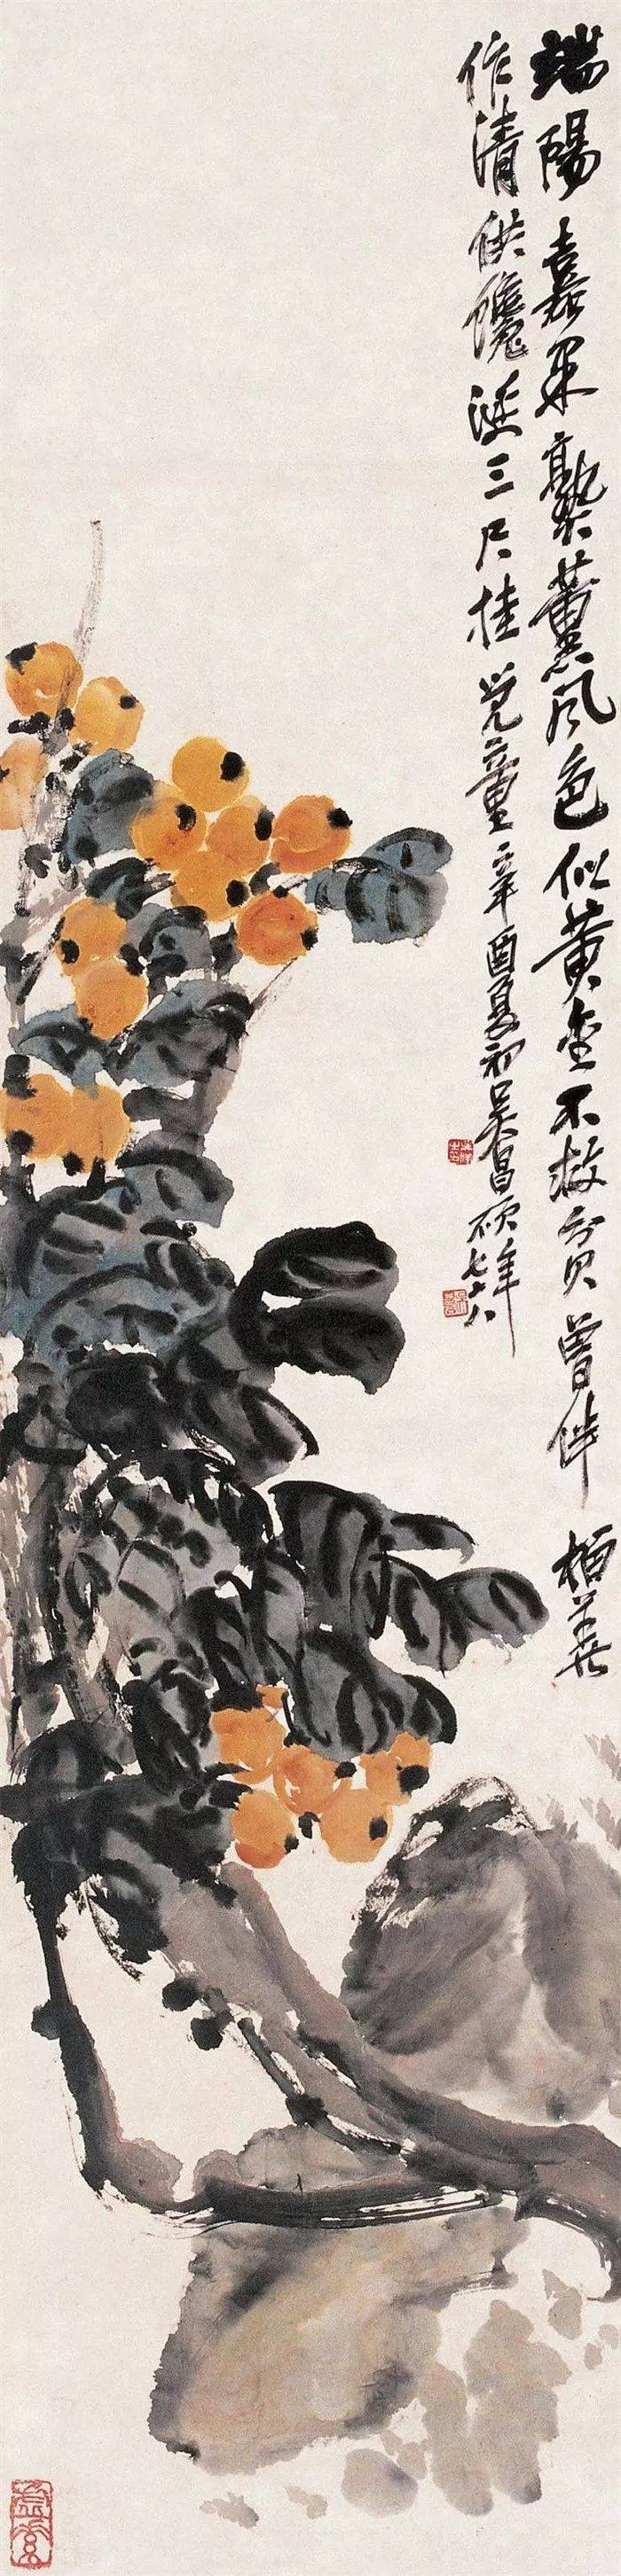 端陽嘉果熟薰風色似黃金不救窮曾伴榴華
作清供饞涎三尺挂兒童辛酉夏初吳昌碩年七十八